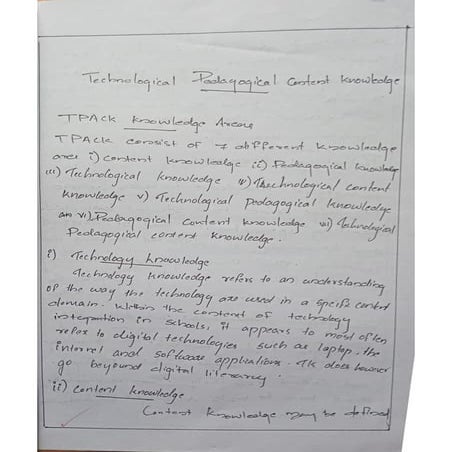 Technological Pedagogical content knowledge
TPACK knowledge Areas
TPACK consist of 7 different knowledge
are i) content knowledge ii) Pedagogical knowledge
iii) Technological knowledge iv) Thechnological content
knowledge v) Technological pedagogical knowledge
vi) Pedagogical content knowledge vii) Technological
Pedagogical content knowledge.
i) Technology knowledge
Technology knowledge refers to an understanding
of the way the technology are used in a specific content
domain. Within the content of technology
integration in schools, it appears to most often
refer to digital technologies such as laptop, the
internet and software applications. TK does however
go beyound digital literancy.
ii) content knowledge
Content knowledge may be defined